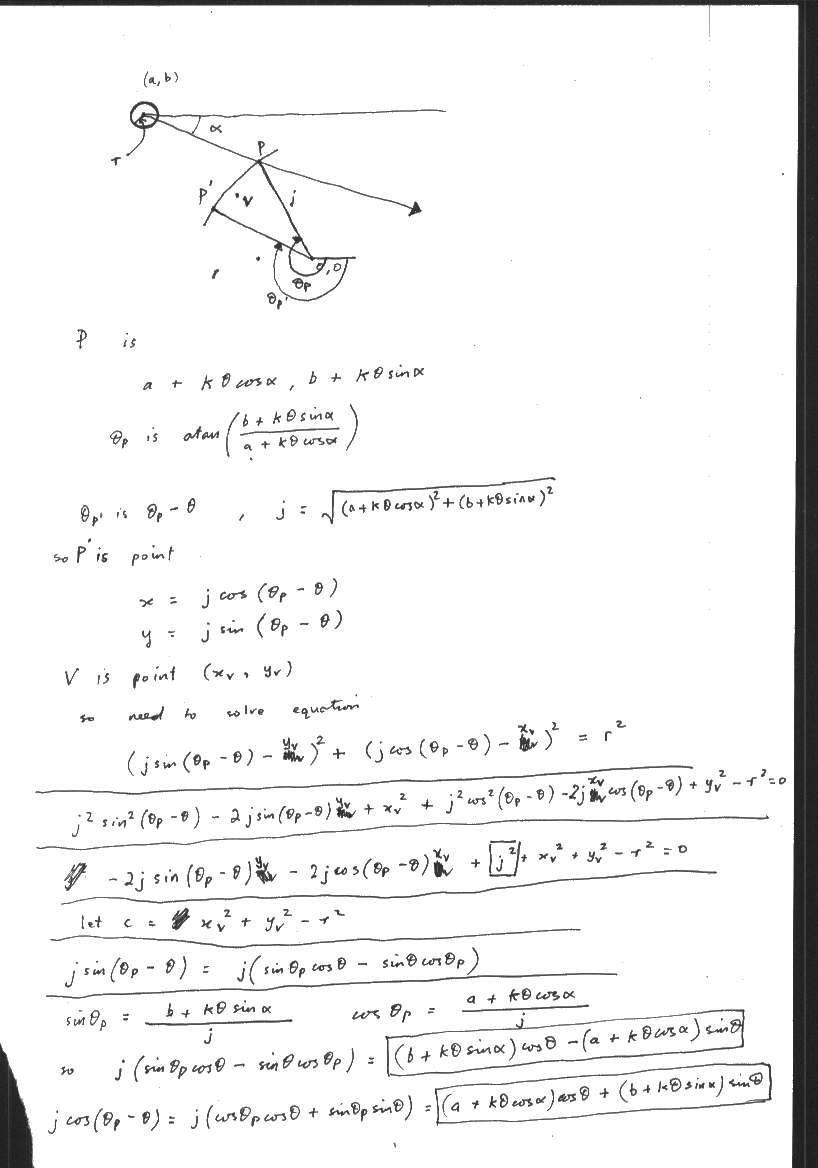 (a, b)
α
T
P
P'
V
j
0, 0
θp
θp'
P is
a + kθcosα, b + kθsinα
θp is atan((b + kθsinα)/(a + kθcosα))
θp' is θp - θ , j = √((a+kθcosα)² + (b+kθsinα)²)
so P' is point
x = j cos (θp - θ)
y = j sin (θp - θ)
V is point (xv, yv)
so need to solve equation
(j sin (θp - θ) - yv)² + (j cos (θp - θ) - xv)² = r²
j² sin² (θp - θ) - 2j sin(θp-θ) yv + xv² + j² cos² (θp - θ) - 2j xv cos (θp - θ) + yv² - r² = 0
- 2j sin (θp - θ) yv - 2j cos (θp - θ) xv + j² + xv² + yv² - r² = 0
let c = xv² + yv² - r²
j sin (θp - θ) = j( sin θp cos θ - sin θ cos θp)
sin θp = (b + kθ sin α)/j cos θp = (a + kθ cos α)/j
so j (sin θp cos θ - sin θ cos θp) = (b + kθ sin α) cos θ - (a + kθ cos α) sin θ
j cos (θp - θ) = j (cos θp cos θ + sin θp sin θ) = (a + kθ cos α) cos θ + (b + kθ sin α) sin θ